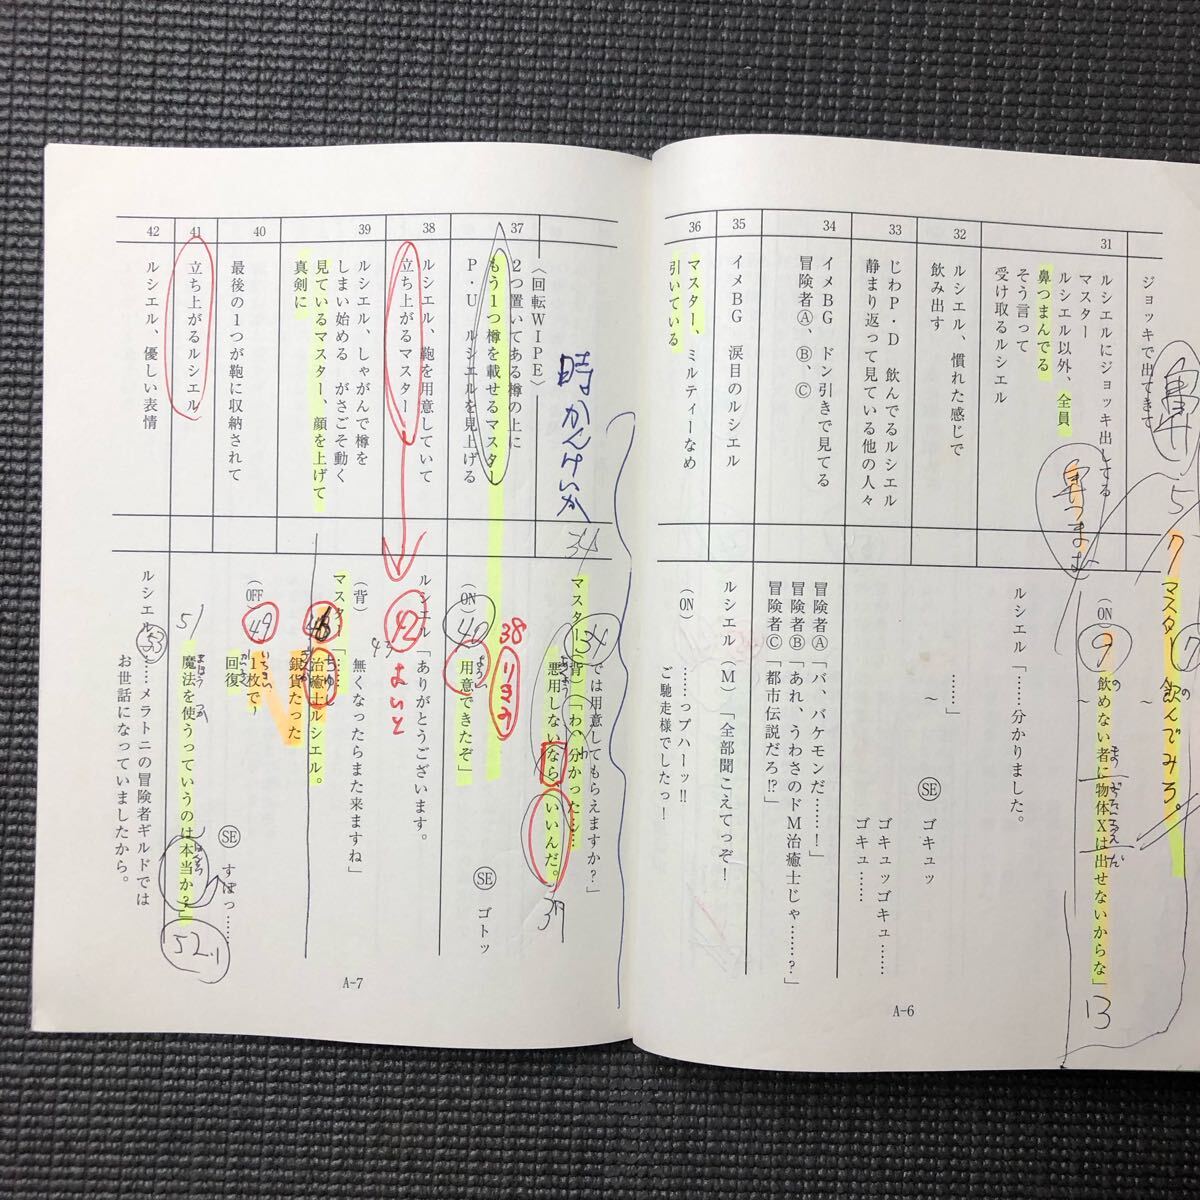 ジョッキで出てきます
鼻
5
7
マスター
飲んでみろ。
~
31
ルシエルにジョッキ出してる
マスター
ルシエル以外、全員
鼻つまんでる
そう言って
受け取るルシエル
鼻つまむ
(ON)
9
飲めない者に物体Xは出せないからな」
~
13
ルシエル「……分かりました。
32
ルシエル、慣れた感じで
飲み出す
……」
~
SE ゴキュッ
33
じわP・D 飲んでるルシエル
静まり返って見ている他の人々
ゴキュッゴキュ……
ゴキュ……
34
イメBG ドン引きで見てる
冒険者Ⓐ、Ⓑ、Ⓒ
冒険者Ⓐ「バ、バケモンだ……！」
冒険者Ⓑ「あれ、うわさのドM治癒士じゃ……？」
冒険者Ⓒ「都市伝説だろ!?」
35
イメBG 涙目のルシエル
ルシエル(M)「全部聞こえてっぞ！
36
マスター、ミルティーなめ
引いている
(ON)
……っプハーッ!!
ご馳走様でしたっ！
A-6
〈回転WIPE〉
時かんけいか
34
では用意してもらえますか？」
37
2つ置いてある樽の上に
もう1つ樽を載せるマスター
P・U ルシエルを見上げる
マスター(背)「わ、分かった……
34
悪用しないなら、いいんだ。
39
38
(ON)
40
用意できたぞ」
SE ゴトッ
38
ルシエル、鞄を用意していて
立ち上がるマスター
ルシエル「ありがとうございます。
42
よいと
39
ルシエル、しゃがんで樽を
しまい始める がさごそ動く
見ているマスター、顔を上げて
真剣に
(背)
43
無くなったらまた来ますね」
マスター「……
治癒士ルシエル。
銀貨たった
40
最後の1つが鞄に収納されて
(OFF)
49
1枚で~
回復
SE すぽっ……
41
立ち上がるルシエル
51
魔法を使うっていうのは本当か？」
52.1
42
ルシエル、優しい表情
ルシエル「……メラトニの冒険者ギルドでは
53
お世話になっていましたから。
A-7